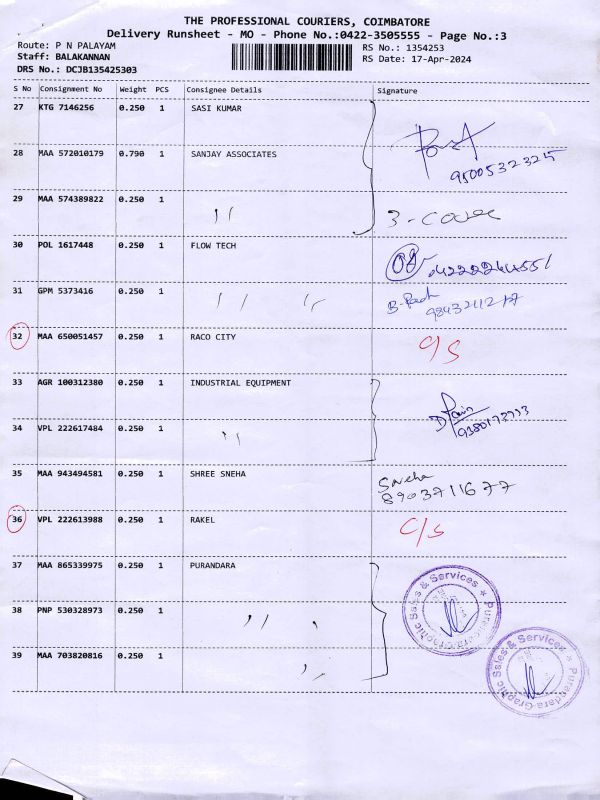 THE PROFESSIONAL COURIERS, COIMBATORE
Delivery Runsheet - MO - Phone No.:0422-3505555 - Page No.:3
Route: P N PALAYAM RS No.: 1354253
Staff: BALAKANNAN RS Date: 17-Apr-2024
DRS No.: DCJB135425303
S No Consignment No Weight PCS Consignee Details Signature
27 KTG 7146256 0.250 1 SASI KUMAR
28 MAA 572010179 0.790 1 SANJAY ASSOCIATES
9500532325
29 MAA 574389822 0.250 1 〃 3-cover
30 POL 1617448 0.250 1 FLOW TECH
04222264551
31 GPM 5373416 0.250 1 〃 〃
9843211217
32 MAA 650051457 0.250 1 RACO CITY C/S
33 AGR 100312380 0.250 1 INDUSTRIAL EQUIPMENT
34 VPL 222617484 0.250 1 〃
35 MAA 943494581 0.250 1 SHREE SNEHA Sneha
8903711677
36 VPL 222613988 0.250 1 RAKEL C/S
37 MAA 865339975 0.250 1 PURANDARA
Purandara Graphic Sales & Services
38 PNP 530328973 0.250 1 〃 〃
39 MAA 703820816 0.250 1 〃
Purandara Graphic Sales & Services